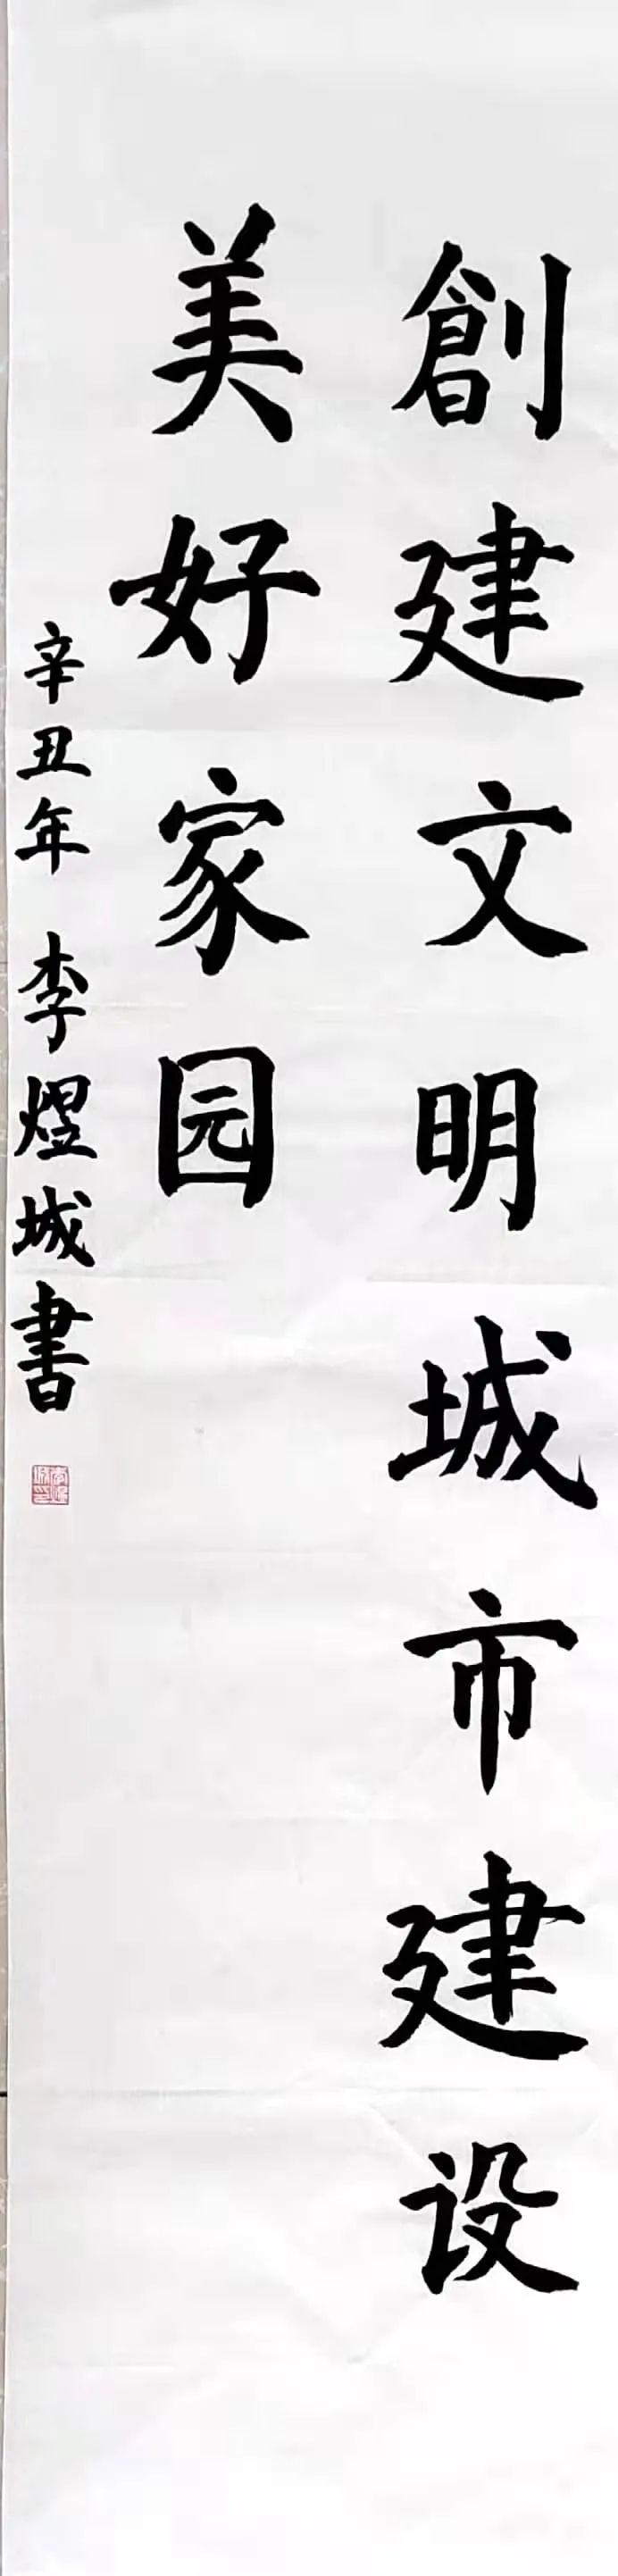 創建文明城市建设
美好家园
辛丑年 李煜城書